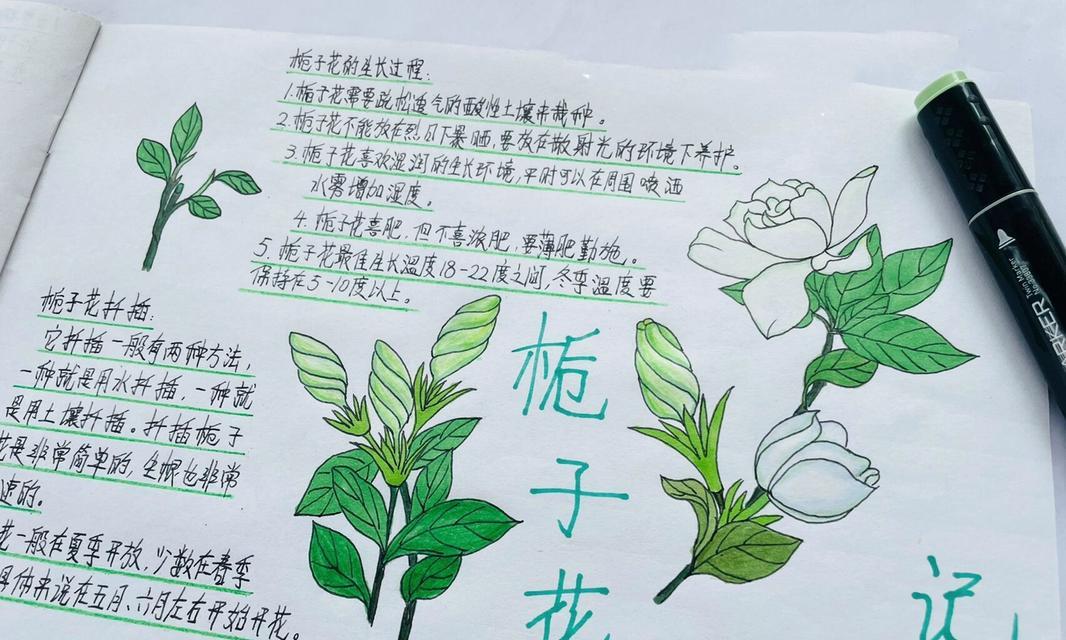 栀子花的生长过程:
1.栀子花需要疏松透气的酸性土壤来栽种。
2.栀子花不能放在烈日下暴晒,要放在散射光的环境下养护。
3.栀子花喜欢湿润的生长环境,平时可以在周围喷洒
水雾增加湿度。
4.栀子花喜肥,但不喜浓肥,要薄肥勤施。
5.栀子花最佳生长温度18-22度之间,冬季温度要
保持在5-10度以上。
栀子花扦插:
它扦插一般有两种方法,
一种就是用水扦插,一种就
是用土壤扦插。扦插栀子
花是非常简单的,生根也非常
速的。
花一般在夏季开放,少数在春季
具体来说在五月、六月左右开始开花。
栀
子
花
记
MARKER
Twin Marker